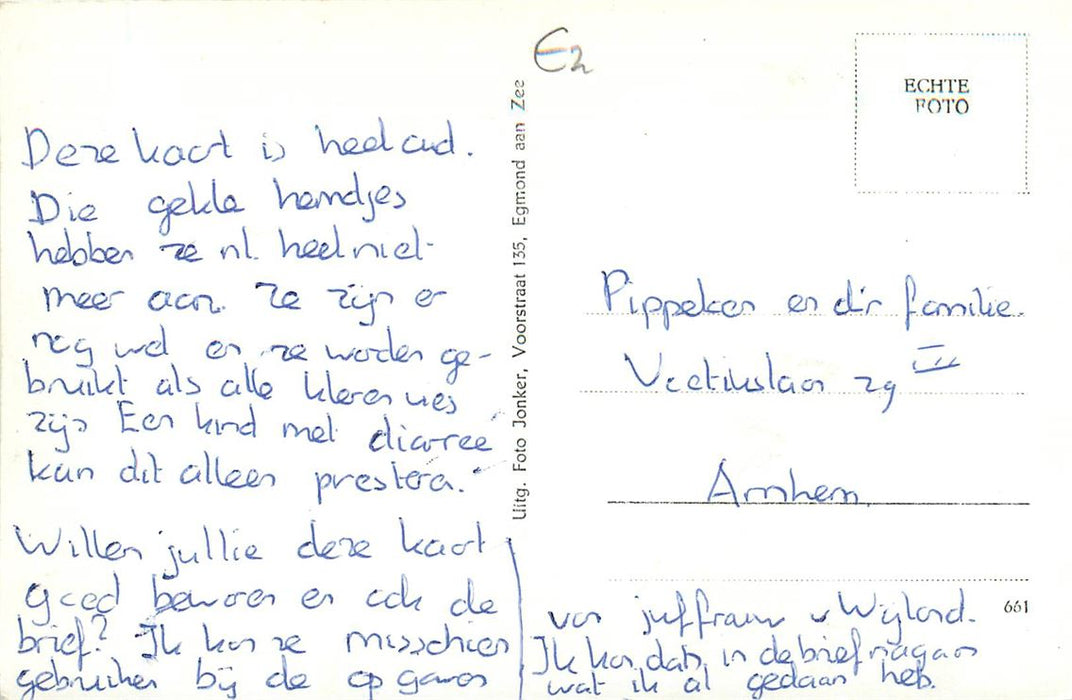 Deze kaart is heel oud.
Die gekke hemdjes
hebben ze nl. heel niet
meer aan. Ze zijn er
nog wel en ze worden ge-
bruikt als alle kleren vies
zijn Een kind met diarree
kan dit alleen presteren.
Willen jullie deze kaart
goed bewaren en ook de
brief? Ik kan ze misschien
gebruiken bij de opgaven
Uitg. Foto Jonker, Voorstraat 135, Egmond aan Zee
E2
ECHTE
FOTO
Pippeken en d'r familie.
29 III
Arnhem
661
van juffrauw v Wijland.
Ik kan dan in de brief nagaan
wat ik al gedaan heb.